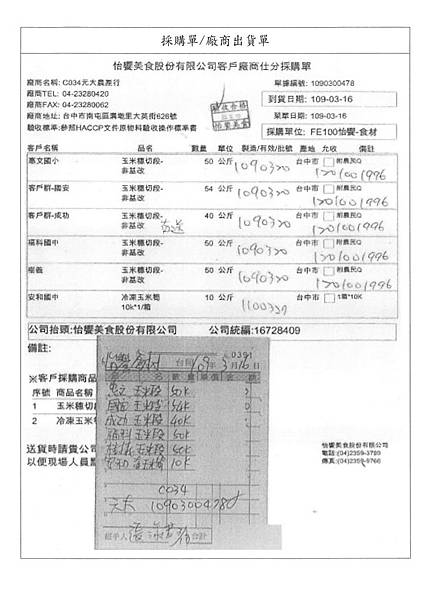 採購單/廠商出貨單
怡饗美食股份有限公司客戶廠商仕分採購單
廠商名稱: C034元大農產行
單據編號: 1090300478
廠商TEL: 04-23280420
廠商FAX: 04-23280062
到貨日期: 109-03-16
廠商地址: 台中市南屯區溝墘里大英街626號
菜單日期: 109-03-16
驗收標準:參照HACCP文件原物料驗收操作標準書
採購單位: FE100怡饗-食材
驗收合格
怡饗美食
客戶名稱 品名 數量 單位 製造/有效/批號 產地 允收 備註
惠文國小 玉米穗切段-非基改 50 公斤 1090320 台中市 附農民Q 1201001996
客戶群-國安 玉米穗切段-非基改 54 公斤 1090320 台中市 附農民Q 1201001996
客戶群-成功 玉米穗切段-非基改 40 公斤 1090320 台中市 附農民Q 1201001996
福科國中 玉米穗切段-非基改 50 公斤 1090320 台中市 附農民Q 1201001996
樹義 玉米穗切段-非基改 50 公斤 1090320 台中市 附農民Q 1201001996
安和國中 冷凍玉米筍 10k*1/箱 10 公斤 台中市 1箱*10K
公司抬頭:怡饗美食股份有限公司 公司統編:16728409
備註:
台照 109年3月16日
※客戶採購商品
序號 商品名稱
1 玉米穗切
2 冷凍玉米
惠文 玉米段 50K
國安 玉米段 54K
成功 玉米段 40K
福科 玉米段 50K
樹義 玉米段 50K
安和 10K
C034
元大 1090300478
經手人
合計
送貨時請貴公司
以便現場人員
怡饗美食股份有限公司
電話:(04)2359-3789
傳真:(04)2359-9766